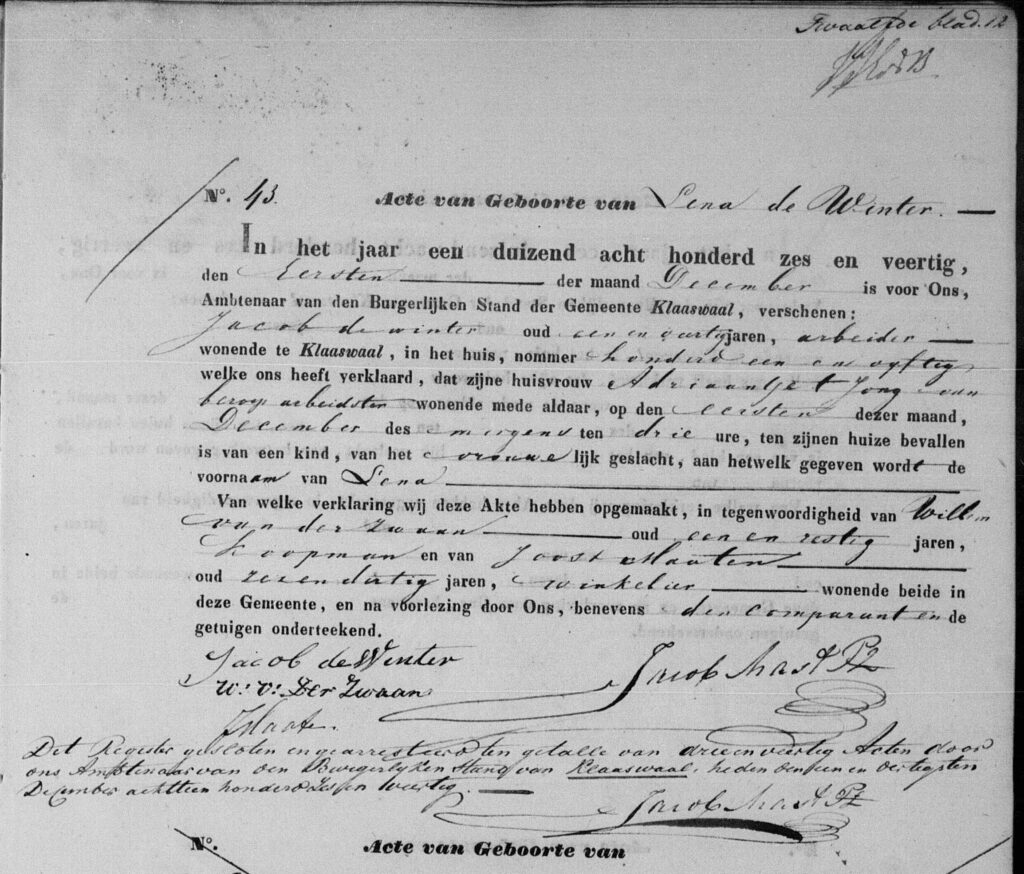 Twaalfde blad. 12
No. 43. Acte van Geboorte van Lena de Winter.
In het jaar een duizend acht honderd zes en veertig,
den Eersten der maand December is voor Ons,
Ambtenaar van den Burgerlijken Stand der Gemeente Klaaswaal, verschenen:
Jacob de winter oud een en jaren, arbeider
wonende te Klaaswaal, in het huis, nommer honderd een en vyftig
welke ons heeft verklaard, dat zijne huisvrouw Adriaantje Jong van
beroep arbeidster wonende mede aldaar, op den eersten dezer maand,
December des morgens ten drie ure, ten zijnen huize bevallen
is van een kind, van het vrouwe lijk geslacht, aan hetwelk gegeven wordt de
voornaam van Lena
Van welke verklaring wij deze Akte hebben opgemaakt, in tegenwoordigheid van Willem
van der Zwaan oud een en jaren,
Koopman en van Joost
oud zes en dertig jaren, winkelier wonende beide in
deze Gemeente, en na voorlezing door Ons, benevens den Comparant en de
getuigen onderteekend.
Jacob de Winter Jacob Mast Pz
W: v: Der Zwaan
Dit Register gesloten en gearresteerd ten getalle van drie en veertig Acten door
ons Ambtenaar van den Burgerlyken Stand van Klaaswaal, heden den een en dertigsten
December achttien honderd zes en veertig.
Jacob Mast Pz
No. Acte van Geboorte van